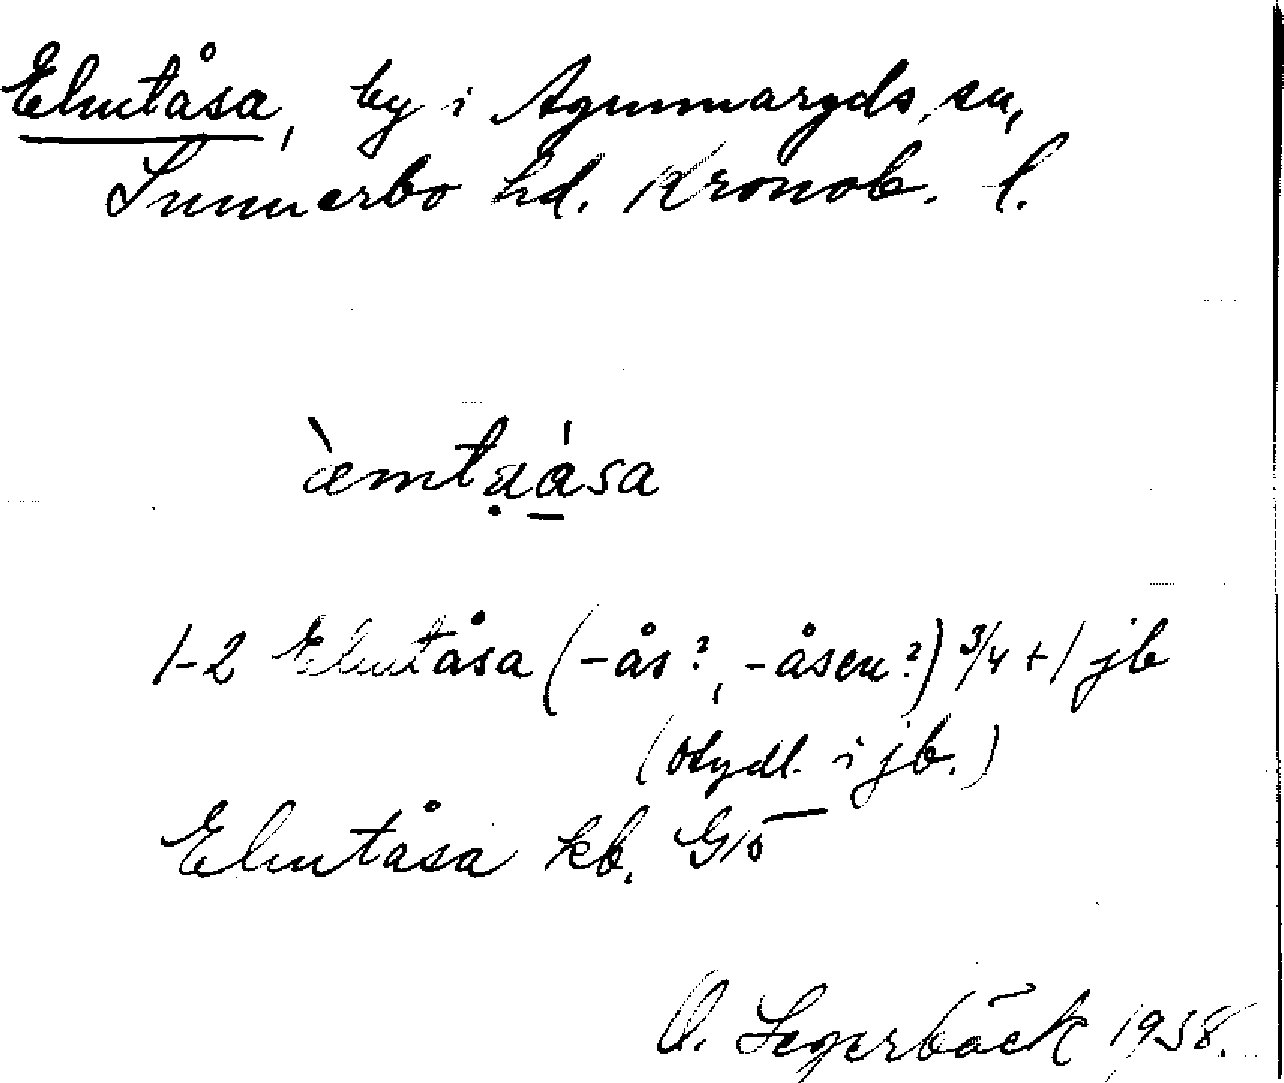 Elmtåsa, by i Agunnaryds sn,
Sunnerbo hd. Kronob. l.
æ̀mtạá̱sa
1-2 Elmtåsa (-ås?, -åsen?) 3/4 + 1 jb
(otydl. i jb.)
Elmtåsa kb,
O. Segerbäck 1958.